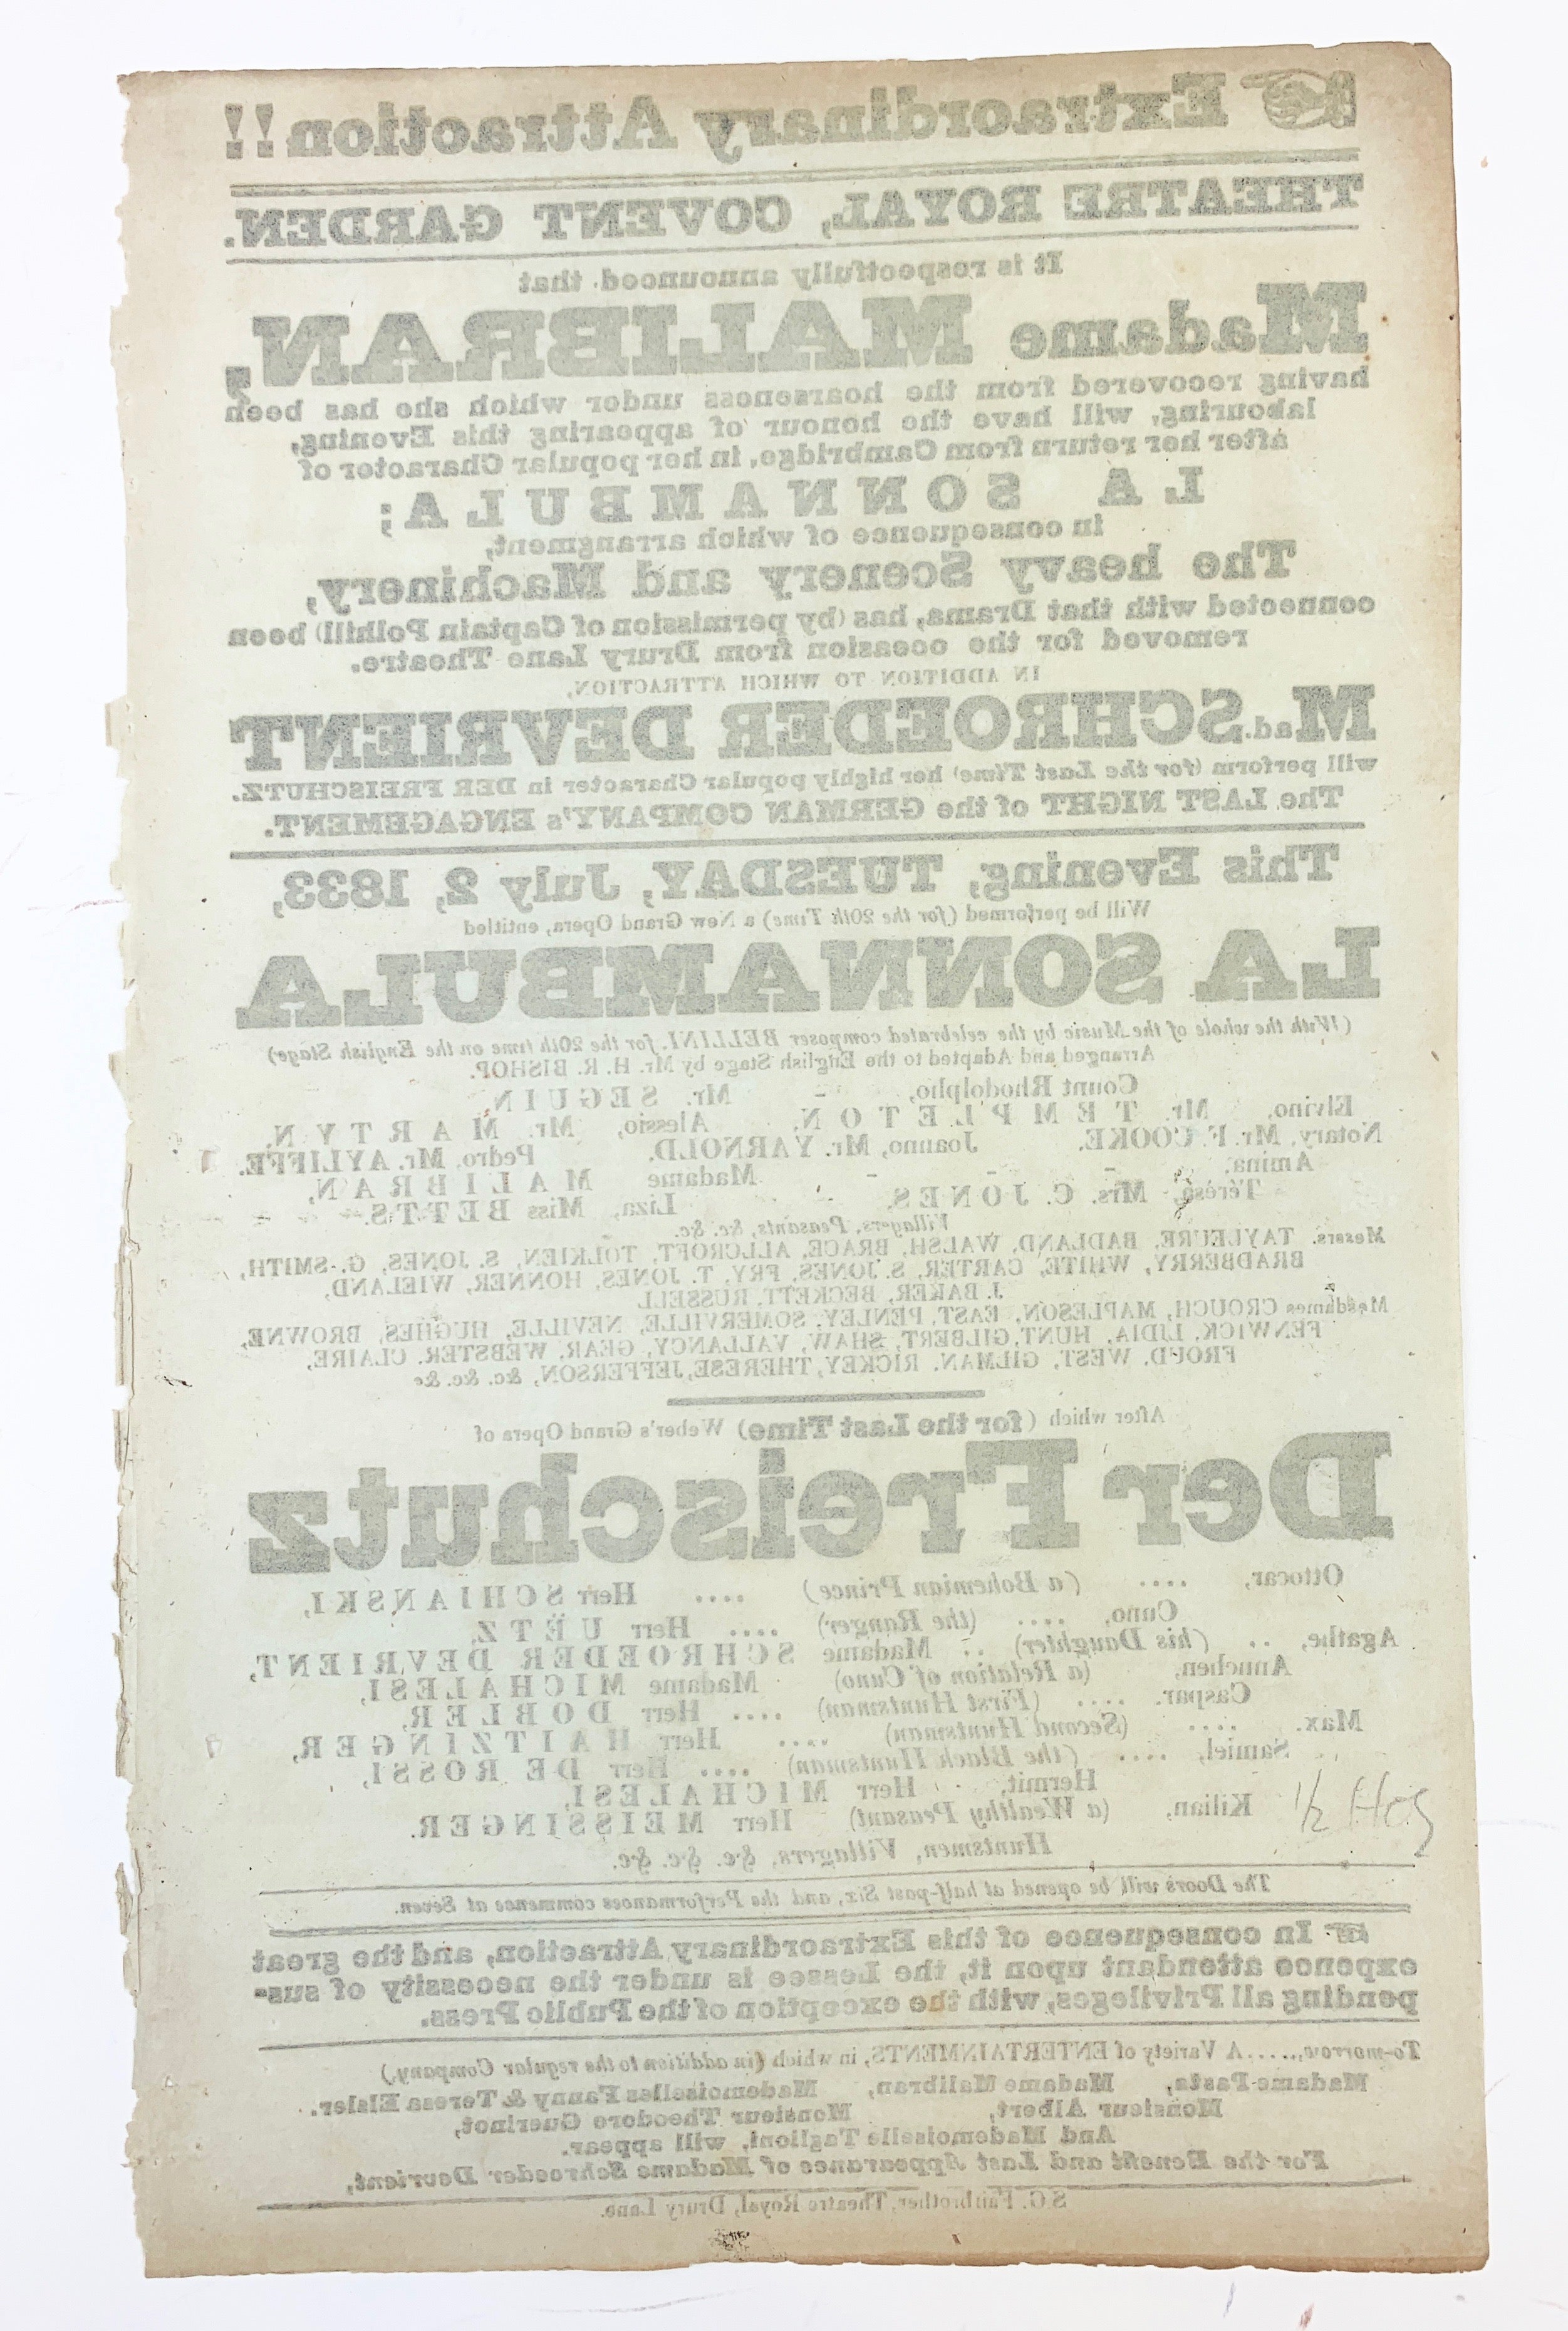 ☞ Extraordinary Attraction!!
THEATRE ROYAL, COVENT GARDEN.
It is respectfully announced that
Madame MALIBRAN,
having recovered from the hoarseness under which she has been
labouring, will have the honour of appearing this Evening,
after her return from Cambridge, in her popular Character of
LA SONNAMBULA;
in consequence of which arrangment,
The heavy Scenery and Machinery,
connected with that Drama, has (by permission of Captain Polhill) been
removed for the occasion from Drury Lane Theatre.
IN ADDITION TO WHICH ATTRACTION,
Mad. SCHROEDER DEVRIENT
will perform (for the Last Time) her highly popular Character in DER FREISCHUTZ.
The LAST NIGHT of the GERMAN COMPANY's ENGAGEMENT.
This Evening, TUESDAY, July 2, 1833,
Will be performed (for the 20th Time) a New Grand Opera, entitled
LA SONNAMBULA
(With the whole of the Music by the celebrated composer BELLINI, for the 20th time on the English Stage)
Arranged and Adapted to the English Stage by Mr. H. R. BISHOP.
Count Rhodolpho, - Mr. SEGUIN,
Elvino, Mr. TEMPLETON, Alessio, Mr. MARTYN,
Notary, Mr. F. COOKE. Joanno, Mr. YARNOLD. Pedro, Mr. AYLIFFE.
Amina, - - - Madame MALIBRAN,
Térèse, Mrs. C. JONES. Liza, Miss BETTS.
Villagers, Peasants, &c. &c.
Messrs. TAYLEURE, BADLAND, WALSH, BRACE, ALLCROFT, TOLKIEN, S. JONES, G. SMITH,
BRADBERRY, WHITE, CARTER, S. JONES, FRY, T. JONES, HONNER, WIELAND,
J. BAKER, BECKETT, RUSSELL
Mesdames CROUCH, MAPLESON, EAST, PENLEY, SOMERVILLE, NEVILLE, HUGHES, BROWNE,
FENWICK, LIDIA, HUNT, GILBERT, SHAW, VALLANCY, GEAR, WEBSTER, CLAIRE,
FROUD, WEST, GILMAN, RICKEY, THERESE, JEFFERSON, &c. &c. &c
After which (for the Last Time) Weber's Grand Opera of
Der Freischutz
Ottocar, .... (a Bohemian Prince) .... Herr SCHIANSKI,
Cuno, .... (the Ranger) .... Herr UETZ,
Agathe, .. (his Daughter) .. Madame SCHROEDER DEVRIENT,
Annchen, (a Relation of Cuno) Madame MICHALESI,
Caspar, .... (First Huntsman) .... Herr DOBLER,
Max, .... (Second Huntsman) .... Herr HAITZINGER,
Samiel, .... (the Black Huntsman) .... Herr DE ROSSI,
Hermit, Herr MICHALESI,
Kilian, (a Wealthy Peasant) Herr MEISSINGER.
Huntsmen, Villagers, &c. &c. &c.
The Doors will be opened at half-past Six, and the Performances commence at Seven.
☞ In consequence of this Extraordinary Attraction, and the great
expence attendant upon it, the Lessee is under the necessity of sus-
pending all Privileges, with the exception of the Public Press.
To-morrow,......A Variety of ENTERTAINMENTS, in which (in addition to the regular Company,)
Madame Pasta, Madame Malibran, Mademoiselles Fanny & Teresa Elsler.
Monsieur Albert, Monsieur Theodore Guerinot,
And Mademoiselle Taglioni, will appear.
For the Benefit and Last Appearance of Madame Schroeder Devrient,
S. G. Fairbrother, Theatre Royal, Drury Lane.
1/2